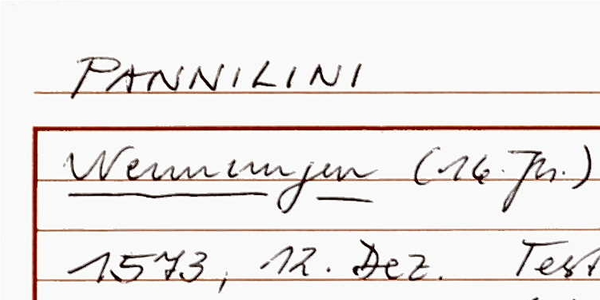 PANNILINI
Nennungen (16. Jh.)
1573, 12. Dez. Test